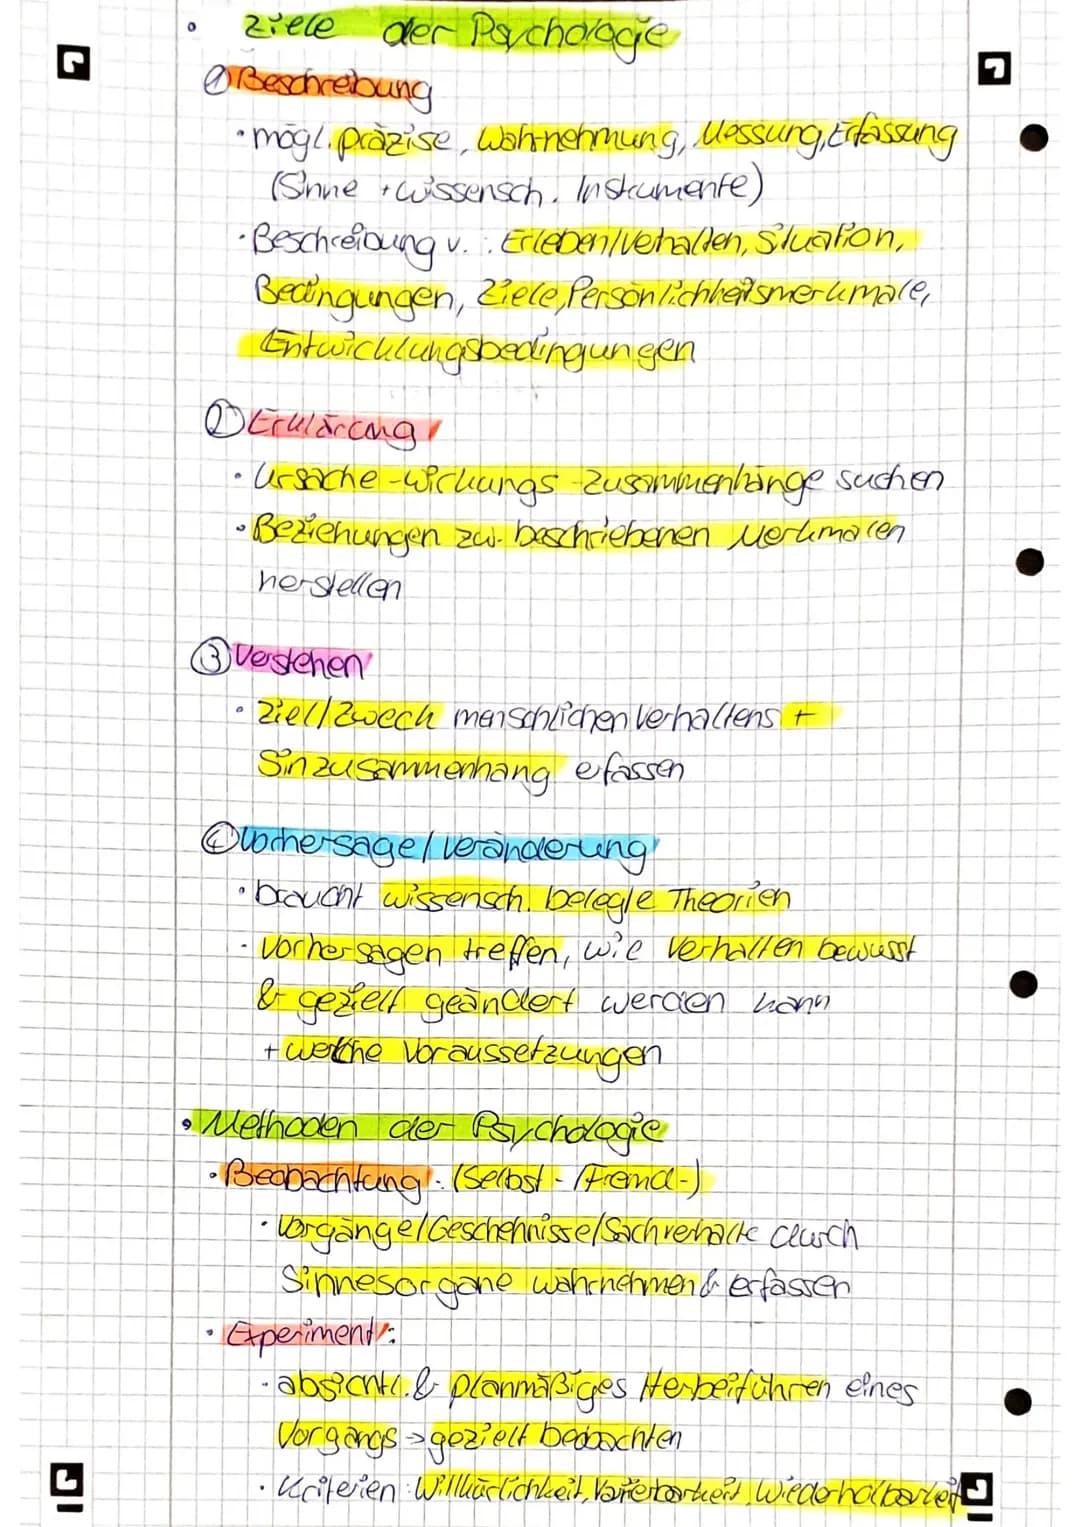 • Ziele der Psychologie
① Beschreibung
• mögl. präzise, Wahrnehmung, Messung, Erfassung
(Sinne + wissensch. Instrumente)
• Beschreibung v. : Erleben/Verhalten, Situation,
Bedingungen, Ziele, Persönlichkeitsmerkmale,
Entwicklungsbedingungen
② Erklärung
• Ursache-Wirkungs-Zusammenhänge suchen
• Beziehungen zw. beschriebenen Merkmalen
herstellen
③ Verstehen
• Ziel/Zweck menschlichen Verhaltens +
Sinzusammenhang erfassen
④ Vorhersage/Veränderung
• braucht wissensch. belegte Theorien
• Vorhersagen treffen, wie Verhalten bewusst
& gezielt geändert werden kann
+ welche Voraussetzungen
• Methoden der Psychologie
• Beobachtung: (Selbst-/Fremd-)
• Vorgänge/Geschehnisse/Sachverhalte durch
Sinnesorgane wahrnehmen & erfassen
• Experiment:
• absichtl. & planmäßiges Herbeiführen eines
Vorgangs → gezielt beobachten
• Kriterien: Willkürlichkeit, Variierbarkeit, Wiederholbarkeit